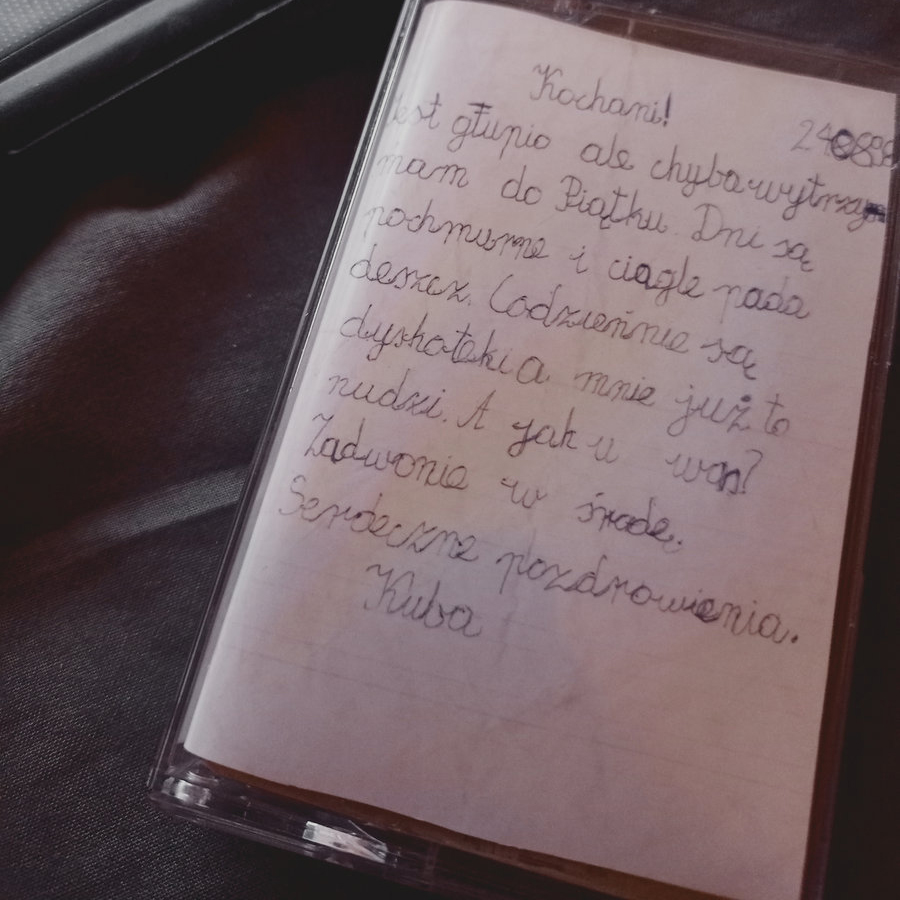 Kochani!
240898
Jest głupio ale chyba wytrzy
mam do Piątku. Dni są
pochmurne i ciągle pada
deszcz. Codziennie są
dyskoteki a mnie już to
nudzi. A jak u was?
Zadwonie w środę.
Serdeczne pozdrowienia.
Kuba